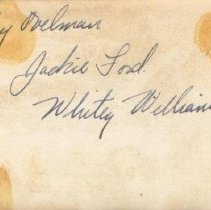 y Poelman
Jackie Ford.
Whitey William